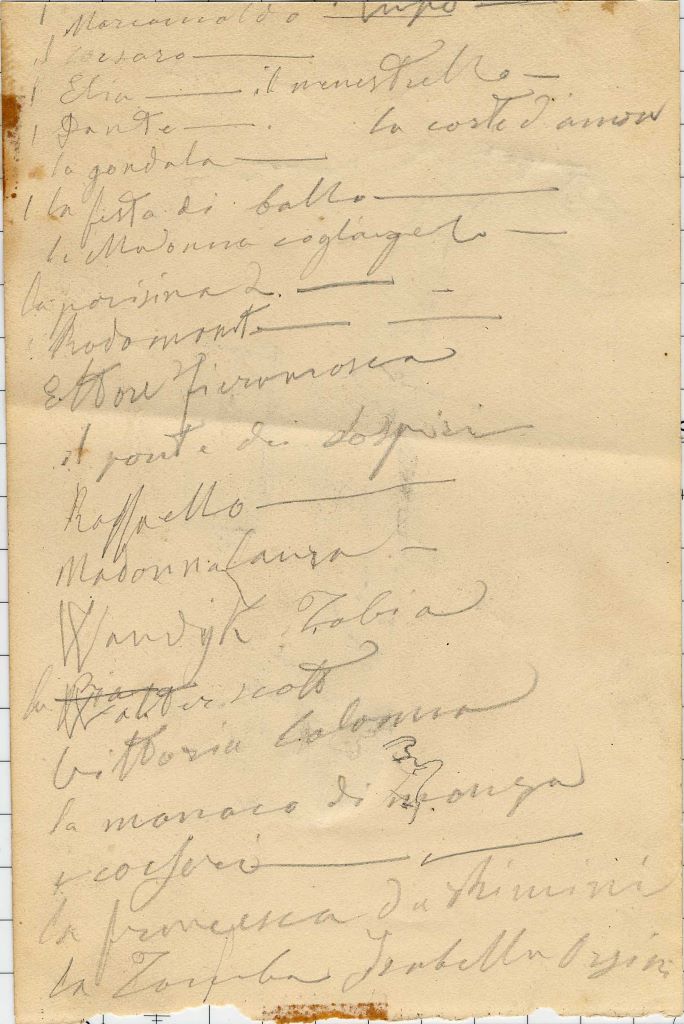 1 Marcovaldo Lupo
il corsaro
1 Elia il menestrello
1 Dante la corte d'amor
la gondola
1 la festa di ballo
la Madonna coglangelo
la parisina 2
Rodomonte
Ettore fieramosca
il ponte dei Sospiri
Raffaello
Madonna Laura
Wandijk Tobia
la Pia
Walter scott
Vittoria Colonna
la monaca di monza
i corsari
la francesca da Rimini
la Tomba Isabella Orsini